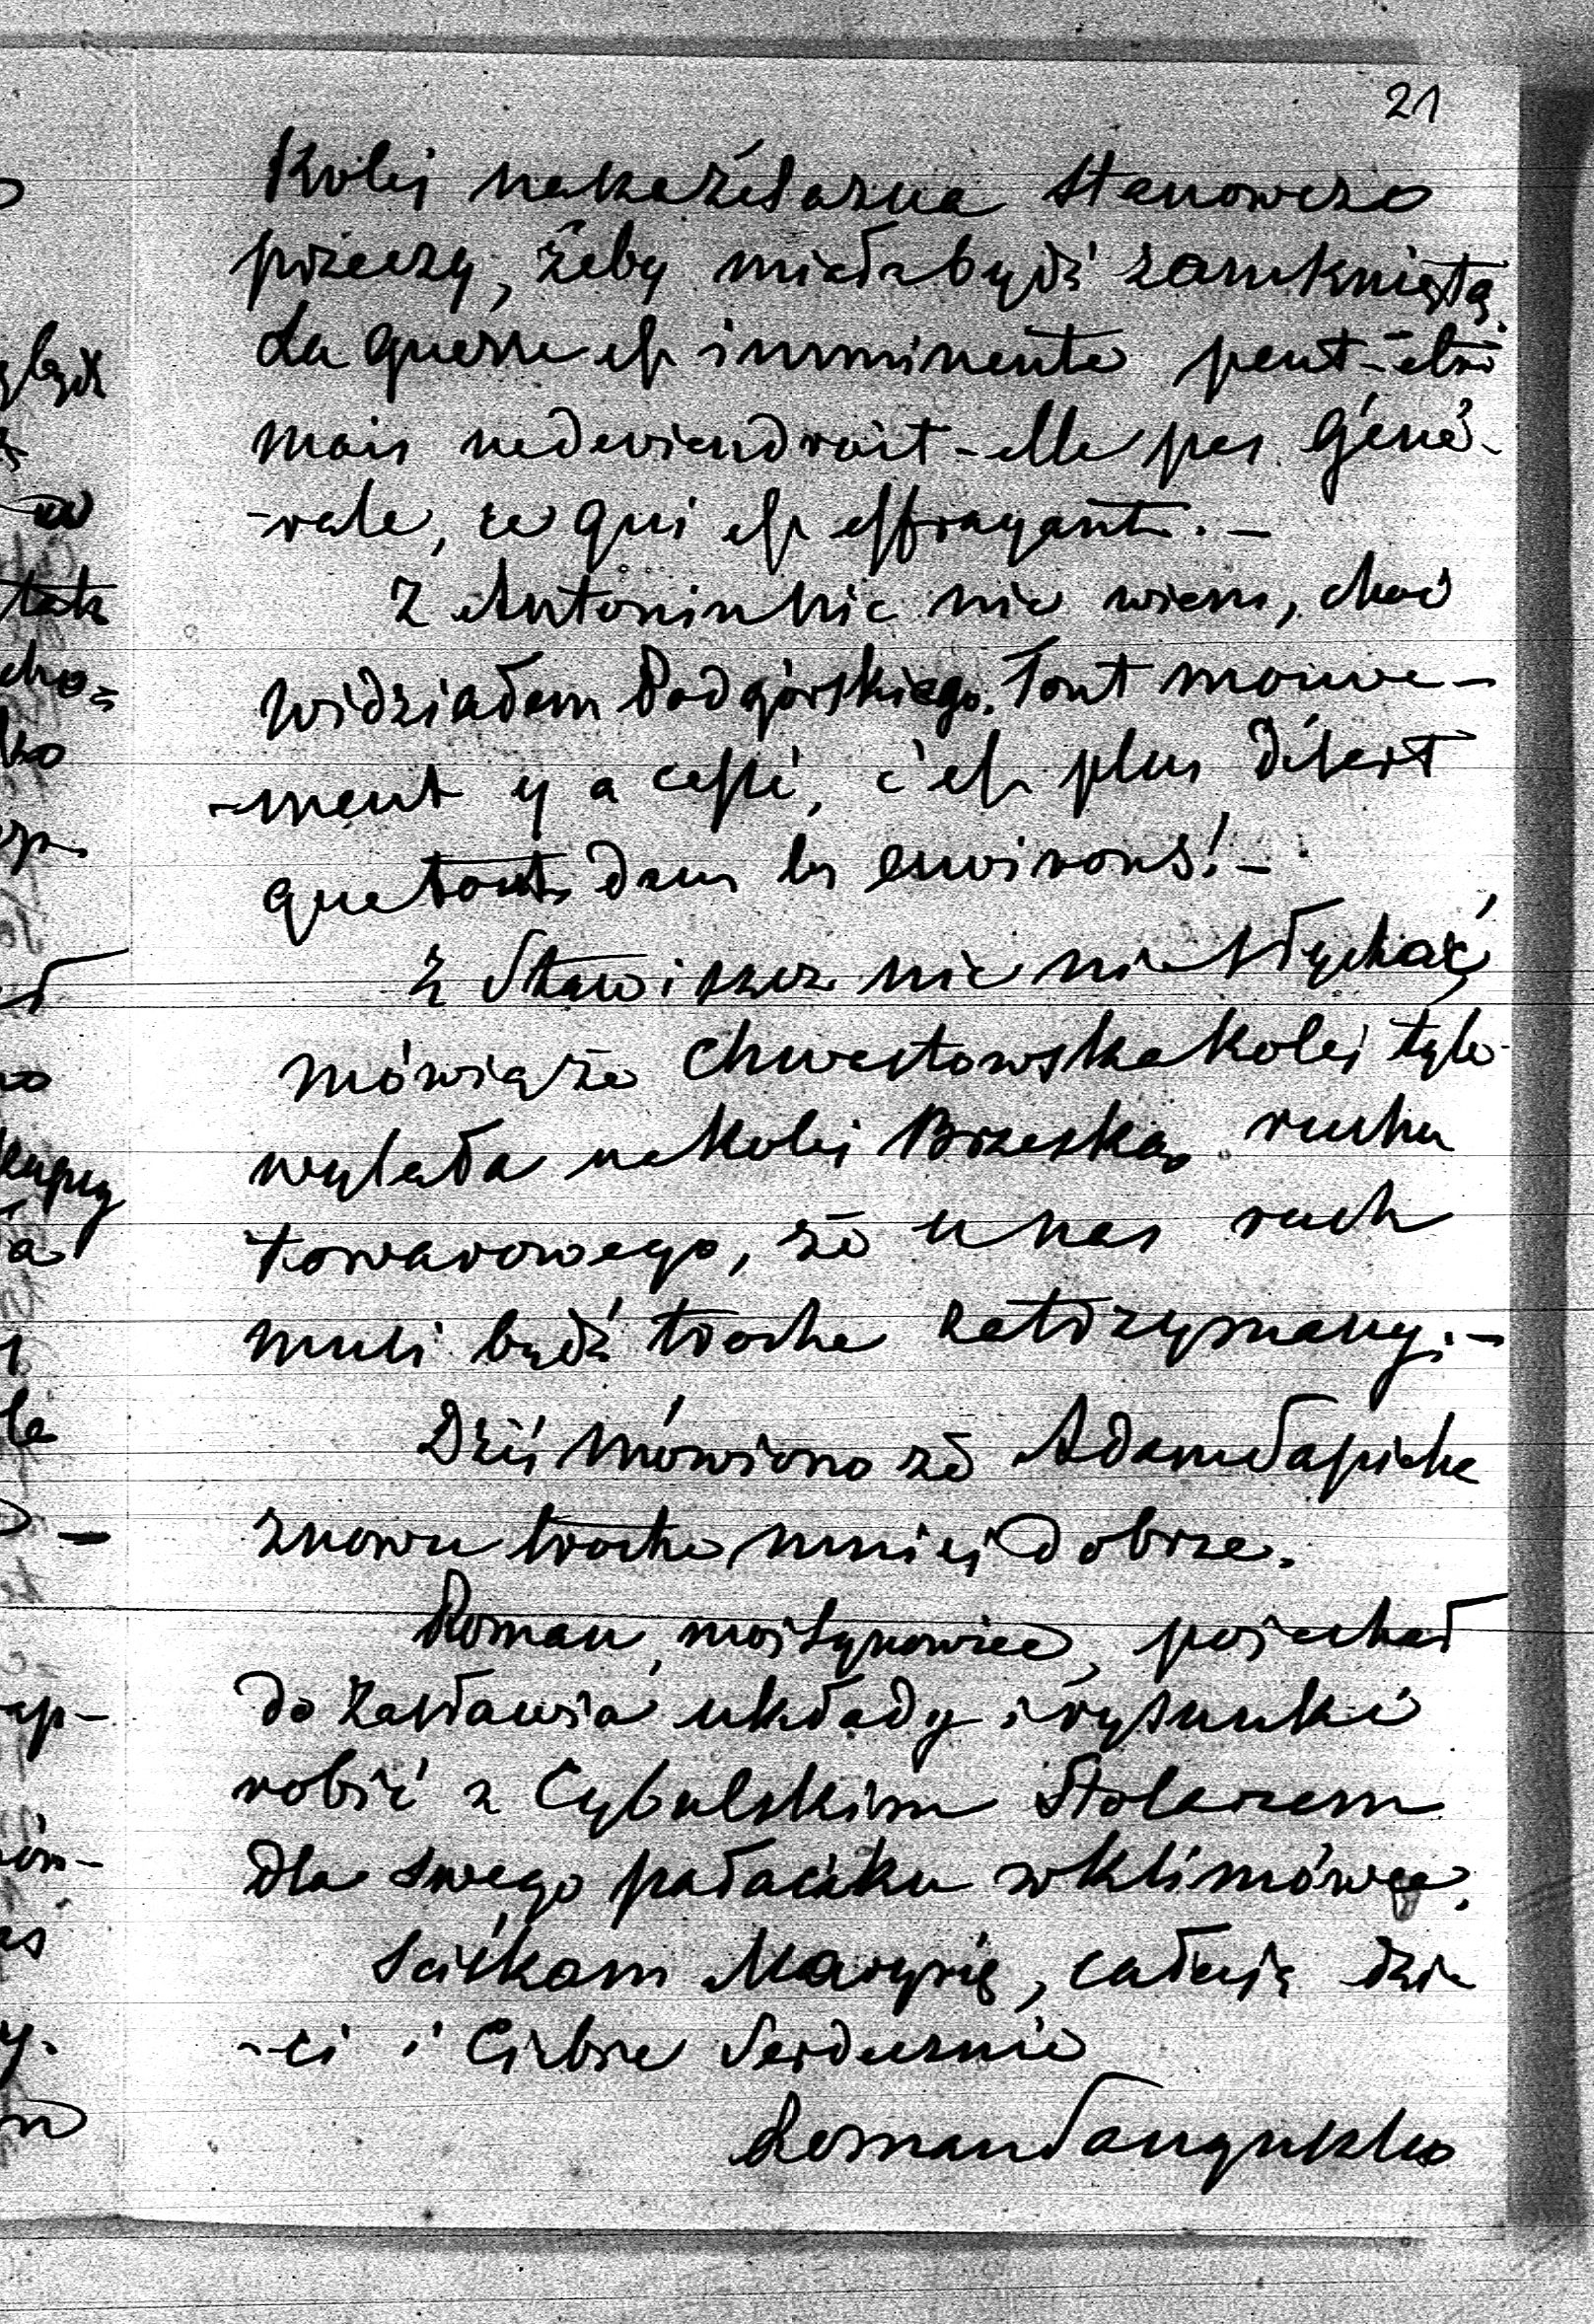 21
Kolej nakażelazna stanowczo
przeczy, żeby miała bydź zamkniętą.
La guerre est imminente peut-être
mais ne deviendrait-elle pas géné-
-rale, ce qui est effrayant. –
Z Antonin nic nie wiem, choć
widziałem Podgórskiego. Tout mouve-
-ment y a cessé, c'est plus désert
que tout dans les environs! –
Z Stawiszcz nic nie słychać,
mówią że Chwastowska kolej tyle
wylała na kolej Brzeską ruchu
towarowego, że u nas ruch
musi bydź troche zatrzymany. –
Dziś mówiono że Adam Sapieha
znowu troche mniej dobrze.
Roman, mój synowiec, pojechał
do Zasławia układy i rysunki
robić z Cybulskim Stolarzem
dla swego pałaciku w Klimówce.
Sciskam Marynię, całuję dzie
-ci i Ciebie Serdecznie
Roman Sanguszko